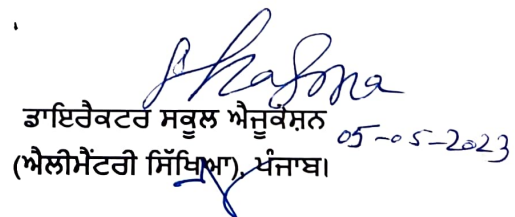 ਡਾਇਰੈਕਟਰ ਸਕੂਲ ਐਜੂਕੇਸ਼ਨ
05-05-2023
(ਐਲੀਮੈਂਟਰੀ ਸਿੱਖਿਆ), ਪੰਜਾਬ।